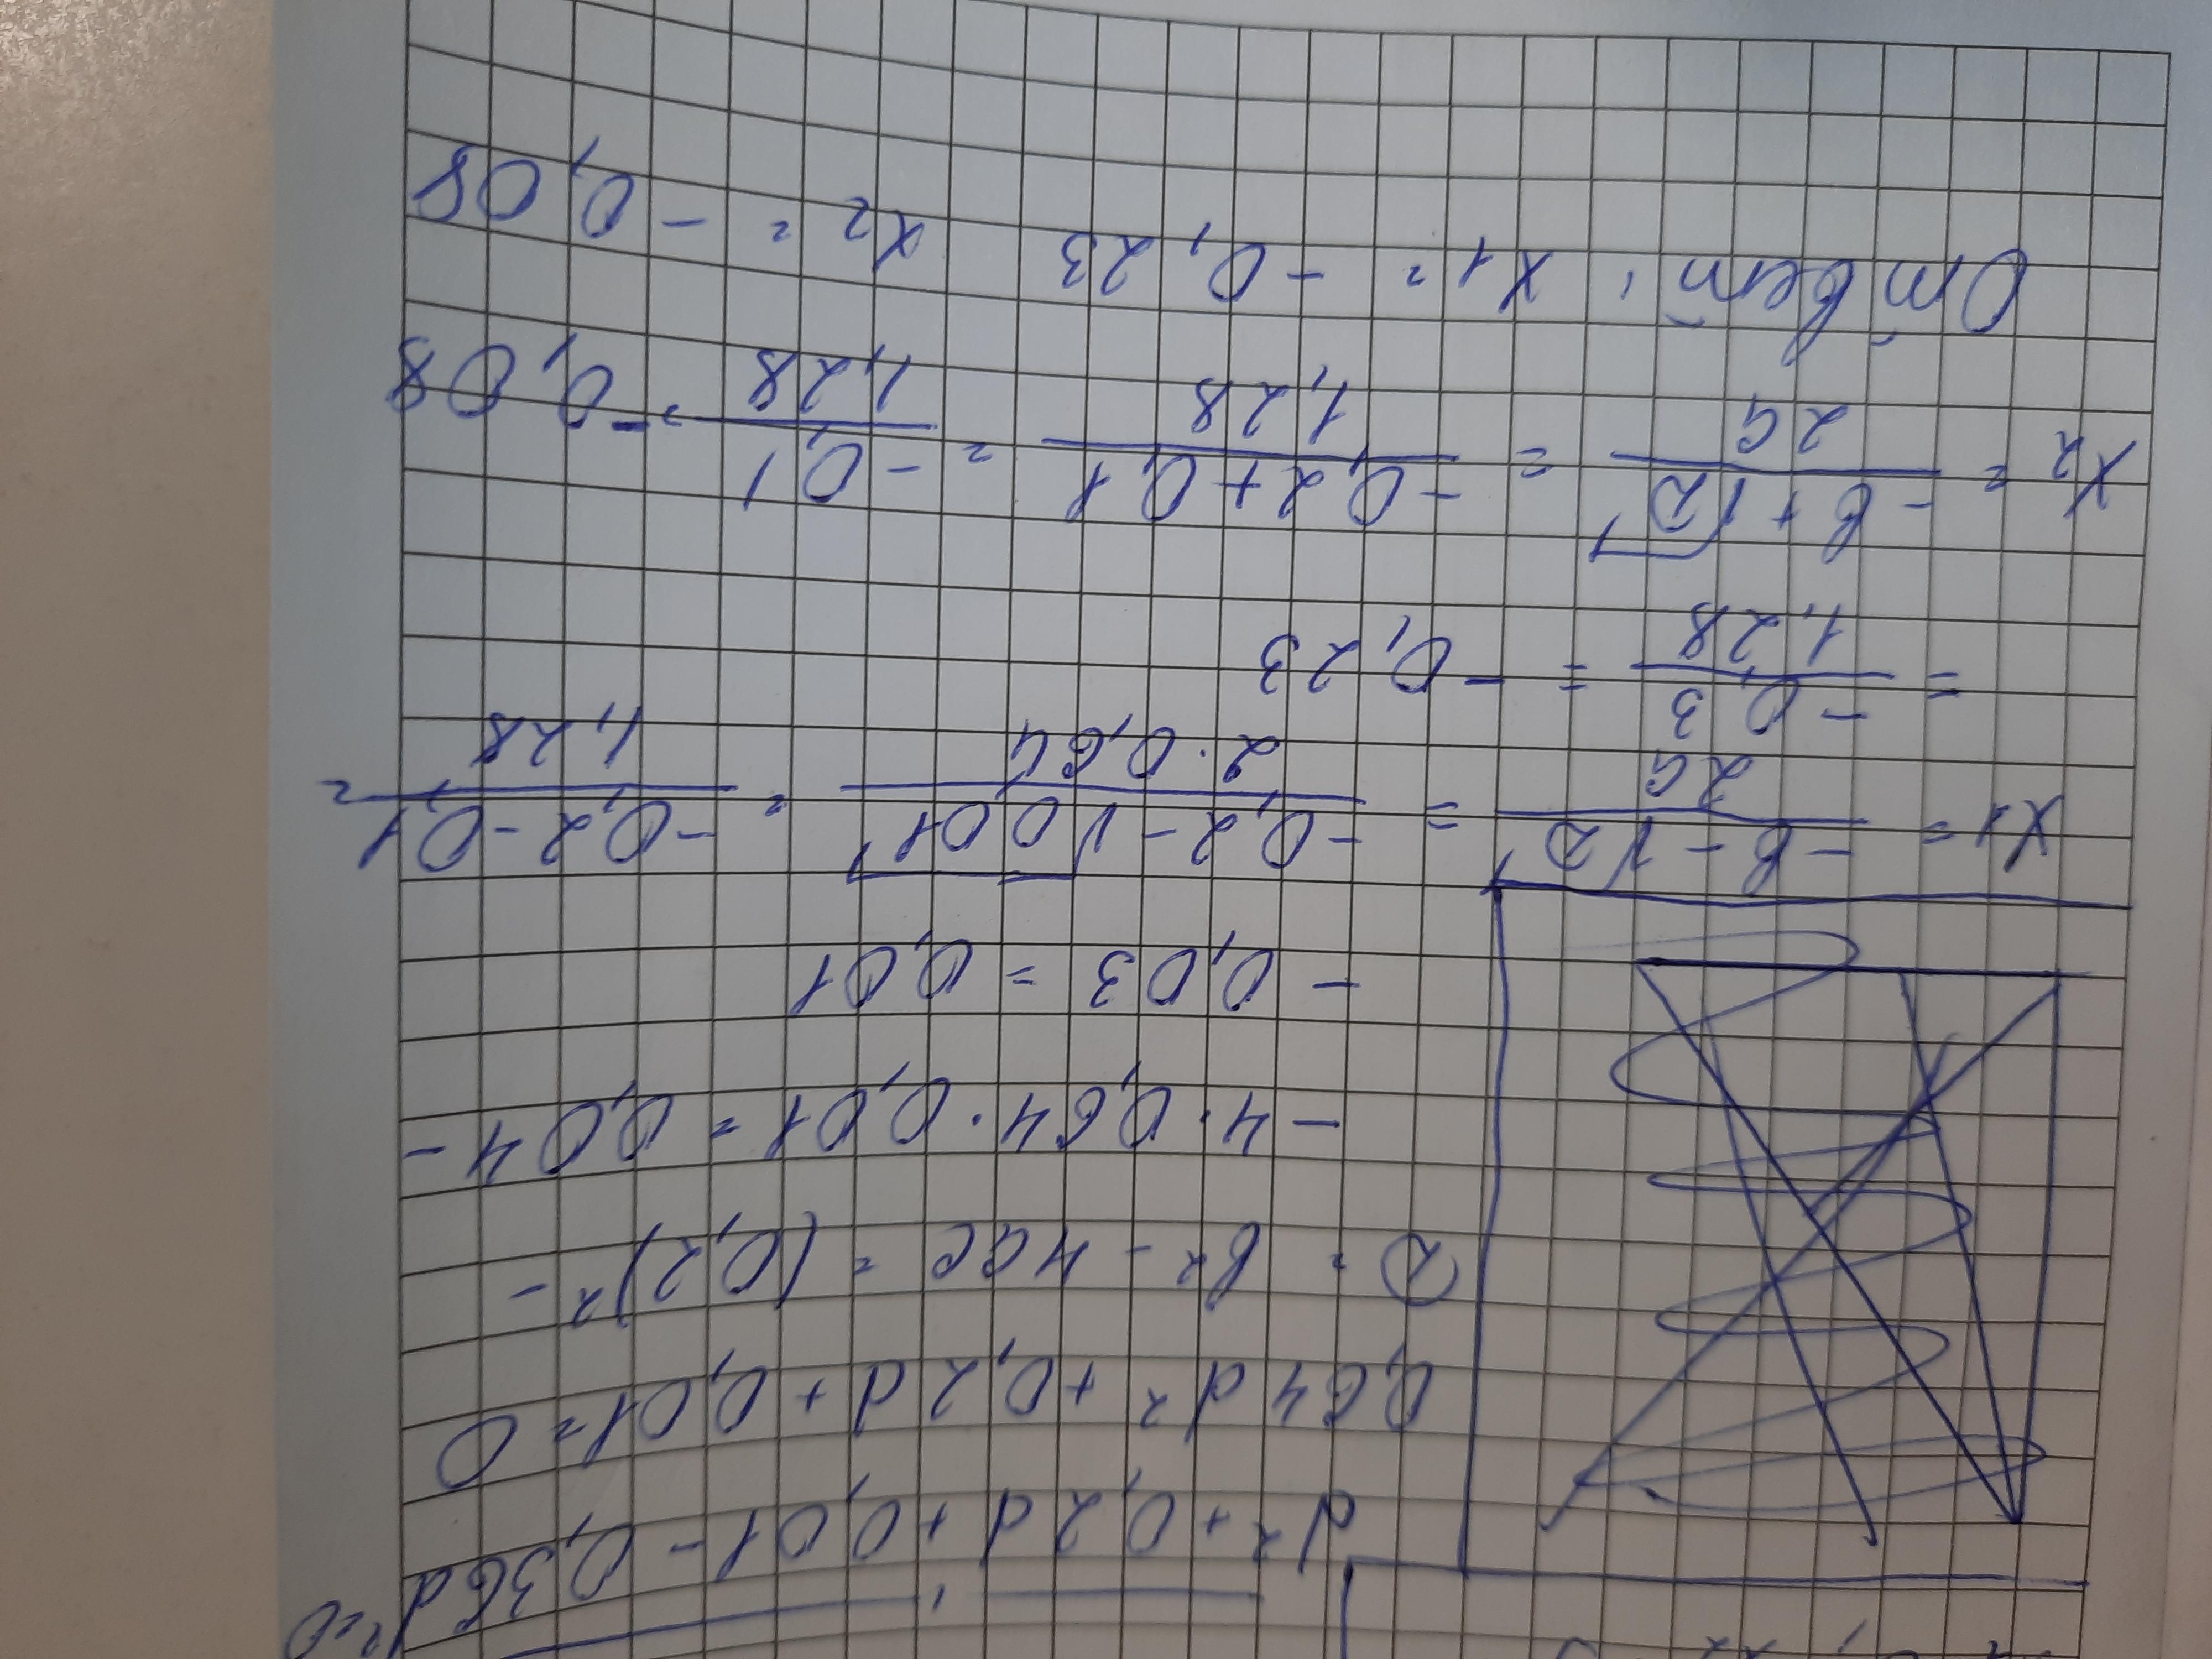 d² + 0,2d + 0,01 - 0,36d² = 0
0,64d² + 0,2d + 0,01 = 0
D = b² - 4ac = (0,2)² -
- 4 · 0,64 · 0,01 = 0,04 -
- 0,03 = 0,01
x₁ = (-b - √D) / 2a = (-0,2 - √0,01) / (2 · 0,64) = (-0,2 - 0,1) / 1,28 =
= -0,3 / 1,28 = -0,23
x₂ = (-b + √D) / 2a = (-0,2 + 0,1) / 1,28 = -0,1 / 1,28 = -0,08
Ответ: x₁ = -0,23 x₂ = -0,08